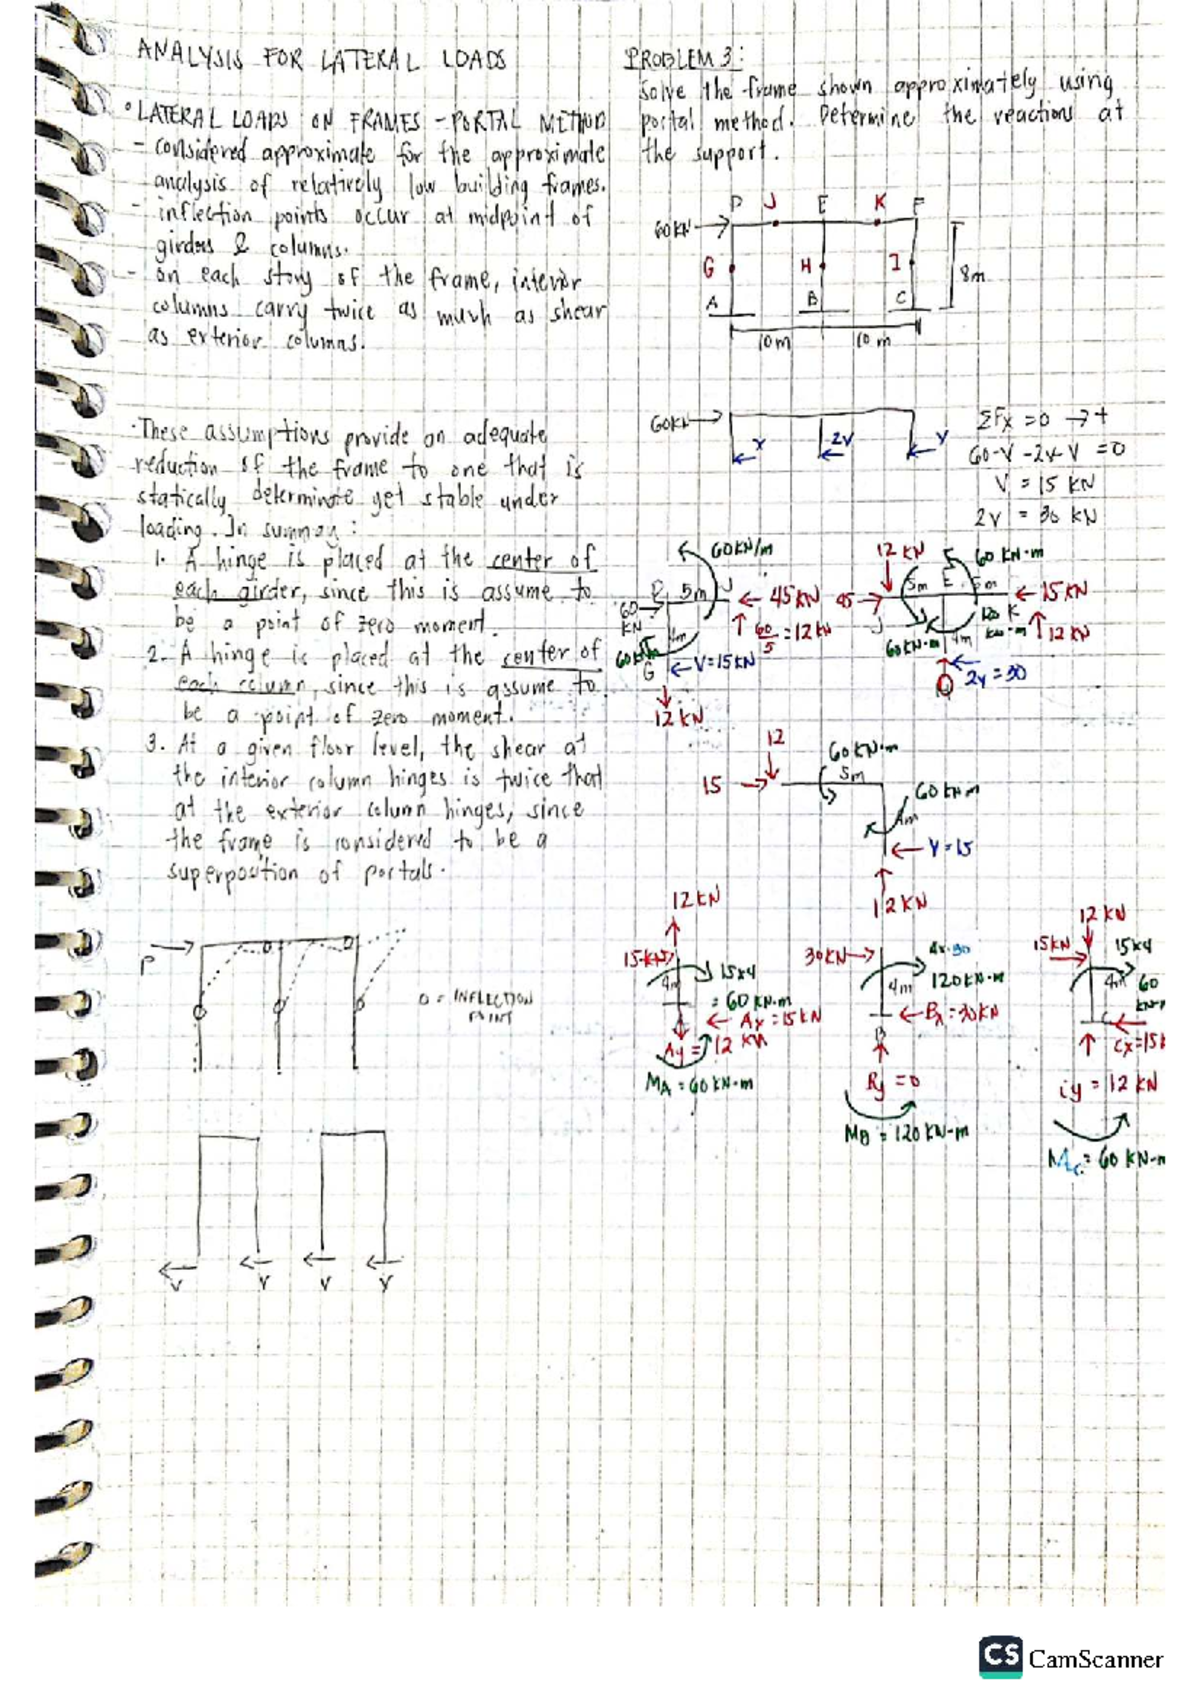 ANALYSIS FOR LATERAL LOADS
• LATERAL LOADS ON FRAMES - PORTAL METHOD
- considered approximate for the approximate
analysis of relatively low building frames.
- inflection points occur at midpoint of
girders & columns.
- on each story of the frame, interior
columns carry twice as much as shear
as exterior columns.
• These assumptions provide an adequate
reduction of the frame to one that is
statically determinate yet stable under
loading. In summay:
1. A hinge is placed at the center of
each girder, since this is assume to
be a point of zero moment.
2. A hinge is placed at the center of
each column, since this is assume to
be a point of zero moment.
3. At a given floor level, the shear at
the interior column hinges is twice that
at the exterior column hinges, since
the frame is considered to be a
superposition of portals.
P
O = INFLECTION
POINT
V V V V
PROBLEM 3:
Solve the frame shown approximately using
portal method. Determine the reactions at
the support.
D J E K F
60KN
G H I
8m
A B C
10m 10 m
60KN
V 2V V
ΣFx = 0 → +
60-V-2V-V = 0
V = 15 KN
2V = 30 KN
60KN/m
12 KN
60 KN·m
D 5m J
5m E 5m
60 KN
45KN
45
15KN
60/5 = 12 KN
J
120 K
KN-m
12 KN
4m
60KN·m
4m
G
V=15KN
2V=30
12 KN
12
60KN·m
15
5m
60KN·m
4m
V=15
12 KN
12 KN
15KN
4m
15x4
= 60 KN·m
Ax = 15 KN
Ay = 12 KN
MA = 60 KN·m
30KN
4x30
4m
120KN·m
Bx = 30KN
B
By = 0
MB = 120 KN-m
12 KN
15KN
15x4
4m
60
C
Cx=15
Cy = 12 KN
Mc = 60 KN-m
CS CamScanner